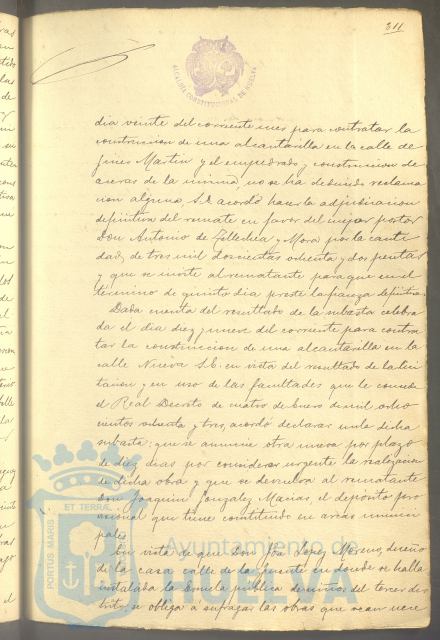 311
ALCALDIA CONSTITUCIONAL DE HUELVA
dia veinte del corriente mes para contratar la
construccion de una alcantarilla en la calle de
Gines Martin y el empedrado y construccion de
aceras de la misma no se ha deducido reclama
cion alguna, S.E. acordó hacer la adjudicacion
definitiva del remate en favor del mejor postor
Don Antonio de Mora por la canti
dad de tres mil doscientas ochenta y dos pesetas
y que se invite al rematante para que en el
término de quinto dia preste la fianza definitiva.
Dada cuenta del resultado de la subasta celebra
da el dia diez y nueve del corriente para contra
tar la construccion de una alcantarilla en la
calle Nueva S.E. en vista del resultado de la lici
tacion y en uso de las facultades que le concede
el Real Decreto de cuatro de Enero de mil ocho
cientos ochenta y tres, acordó declarar nula dicha
subasta: que se anuncie otra nueva por plazo
de diez dias por considerar urgente la realizacion
de dicha obra y que se devuelva al rematante
Don Joaquin Gonzalez Macias, el depósito pro
visional que tiene constituido en arcas munici
pales.
En vista de que Don José Lopez Moreno, dueño
de la casa calle de la Fuente en donde se halla
instalada la Escuela pública de niños del tercer dis
trito, se obliga a sufragar las obras que sean nece
PORTUS MARIS
ET TERRÆ
Ayuntamiento de
HUELVA